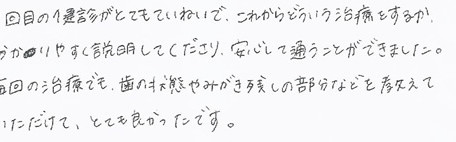 回目の健診がとてもていねいで、これからどういう治療をするか、
かりやすく説明してくださり、安心して通うことができました。
毎回の治療でも、歯の状態やみがき残しの部分などを教えて
いただけて、とても良かったです。